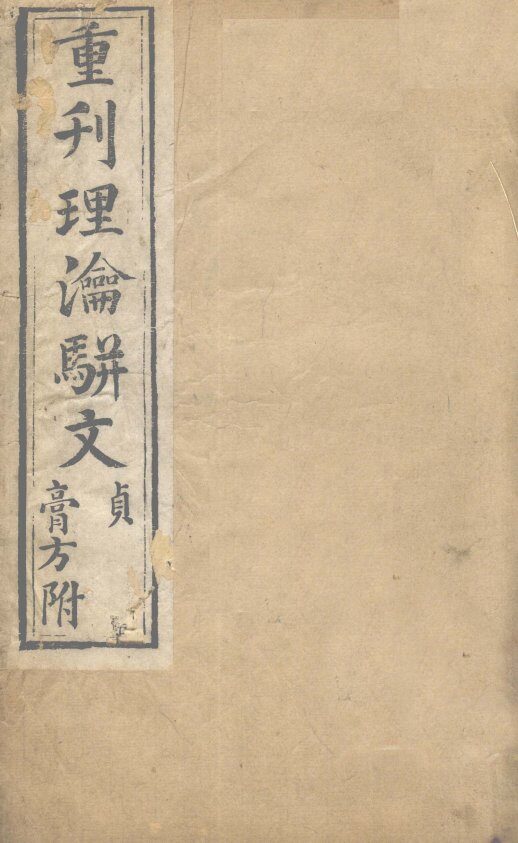 重刋理瀹駢文
貞
膏方附